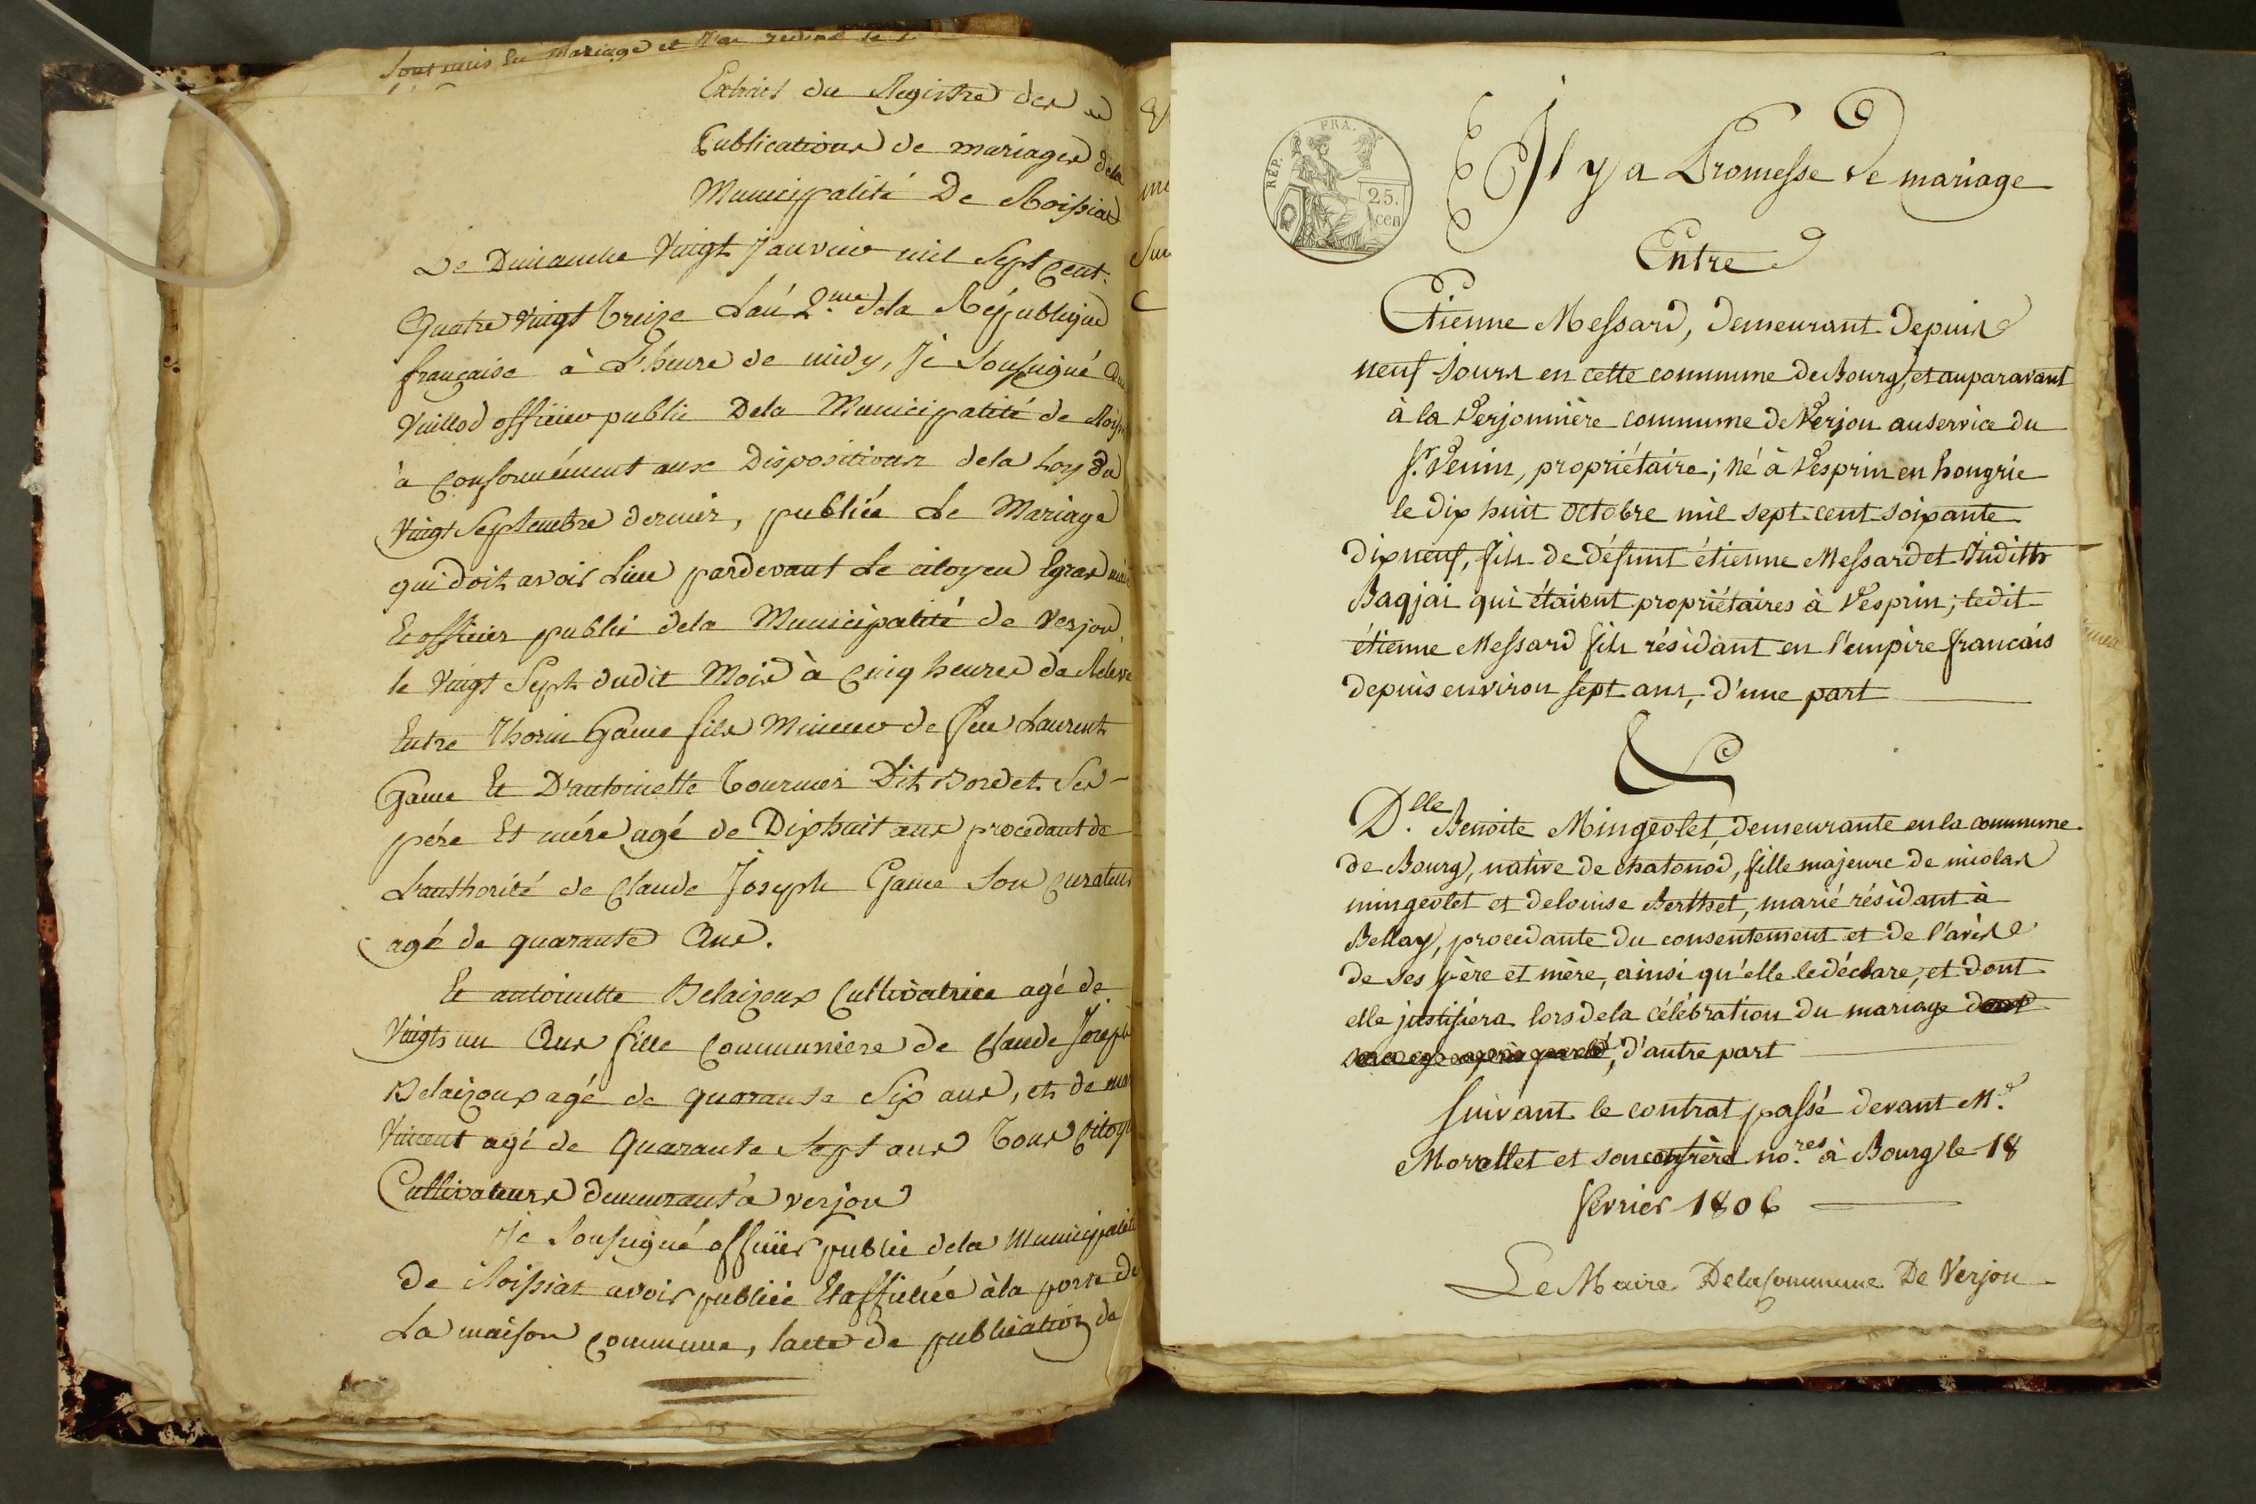 Sont unis en Mariage et
Extrait du Registre des
Publications de mariages dela
Municipalité De Roissiat
Le Dimanche Vingt Janvier mil Sept Cent
Quatre Vingt treize L'an 2.me dela République
française à L'heure de midy, Je Soussigné
Vuillod officier public Dela Municipalité de
à Conformément aux Dispositions dela Loy du
Vingt Septembre dernier, publiée Le Mariage
qui doit avoir Lieu pardevant Le citoyen Egras
Et officier public dela Municipalité de Verjon,
le Vingt Sept dudit Mois à Cinq heures de Relevé
Entre Thorin Game fils Mineur de feu Laurent
Game Et D'antoinette Tournier Dit Bordet Ses
pére Et mére agé de Dixhuit ans procedant de
L'authorité de Claude Joseph Game Son Curateur
agé de quarante Ans.
Et antoinette Belaizoux Cultivatrice agé de
Vingt un Ans fille Communiere de Claude Joseph
Belaizoux agé de quarante Six ans, et de
Vincent agé de Quarante Sept ans Tous Citoy
Cultivateurs demeurant à verjon
Je Soussigné officier public dela Municipalité
de Roissiat avoir publiée Et affichée à la porte de
La maison Commune, lacte de publication de
RÉP. FRA.
25.
cen
Il y a Promesse de mariage
Entre
Etienne Messard, demeurant depuis
neuf Jours en cette commune de Bourg, et auparavant
à la Verjonnière commune de Verjon au service du
S.r Venin, propriétaire; né à Vesprin en hongrie
le dix huit octobre mil sept cent soixante
dix neuf, fils de défunt étienne Messard et Judith
Bagjai qui étaient propriétaires à Vesprin; ledit
étienne Messard fils résidant en l'empire francais
depuis environ sept ans, d'une part
&
D.lle Benoite Mingeolet, demeurante en la commune
de Bourg, native de chatonod, fille majeure de nicolas
mingeolet et de louise Berthet, marié résidant à
Bellay, procedante du consentement et de l'avis
de ses père et mère, ainsi qu'elle le déclare, et dont
elle justifiéra lors dela célébration du mariage
, d'autre part
Suivant le contrat passé devant M.e
Morellet et son confrère no.res à Bourg le 18
fevrier 1806
Le Maire Dela Commune De Verjon